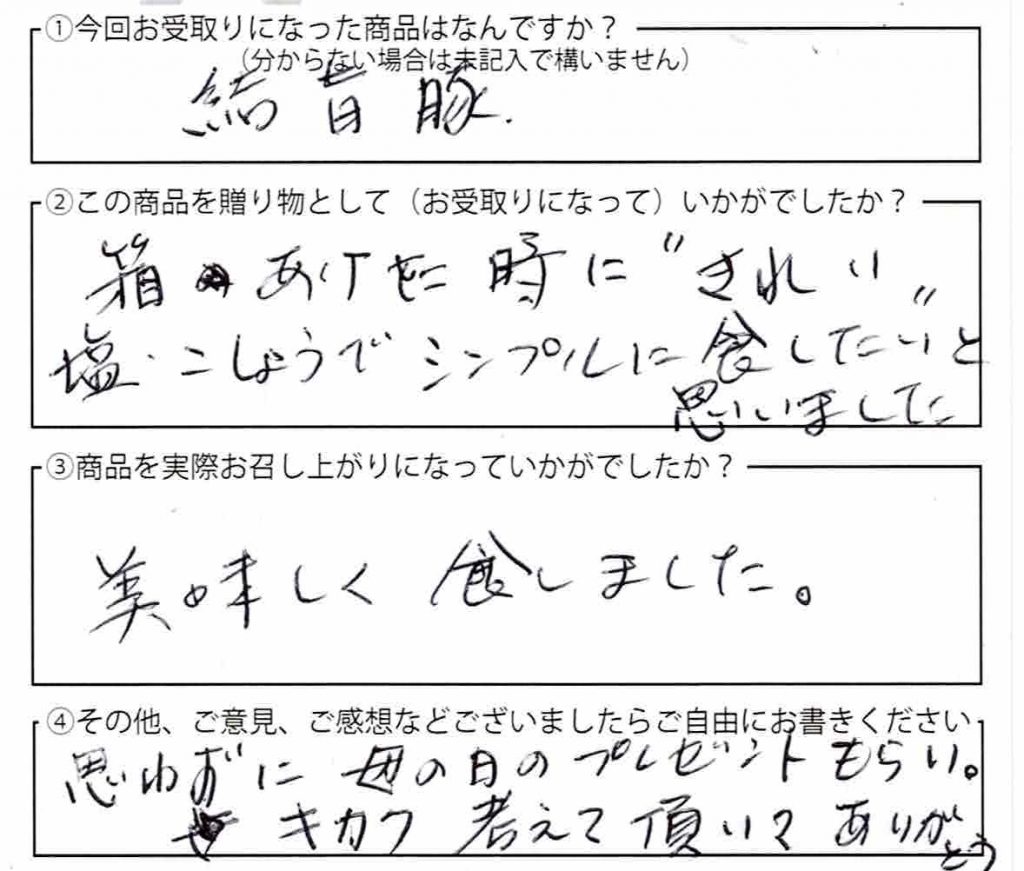 ①今回お受取りになった商品はなんですか？
（分からない場合は未記入で構いません）
結旨豚.
②この商品を贈り物として（お受取りになって）いかがでしたか？
箱 あけた時に〝きれい〟
塩・こしょうでシンプルに食したいと
思いました
③商品を実際お召し上がりになっていかがでしたか？
美味しく食しました。
④その他、ご意見、ご感想などございましたらご自由にお書きください
思わずに 母の日のプレゼントもらい。
キカク 考えて頂いて ありが
とう